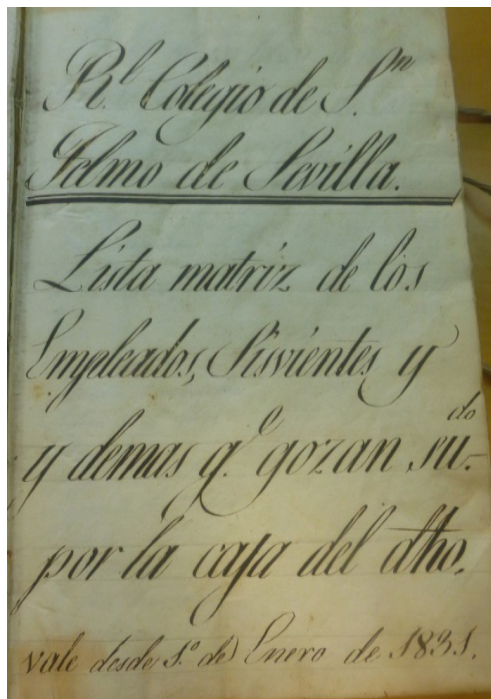 Rl. Colegio de Sn.
Telmo de Sevilla.
Lista matriz de los
Empleados, Sirvientes y
y demas qe. gozan suedo.
por la caja del dho.
vale desde 1.º de Enero de 1831.